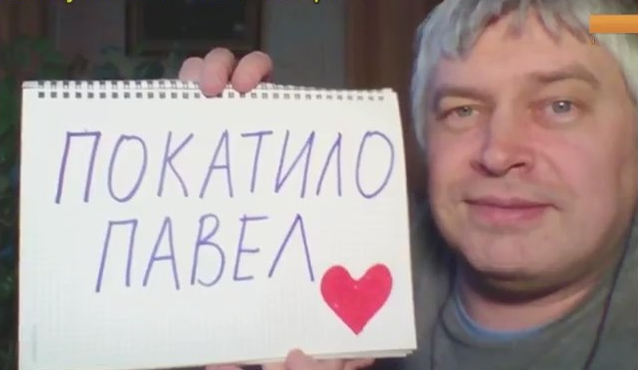 ПОКАТИЛО
ПАВЕЛ